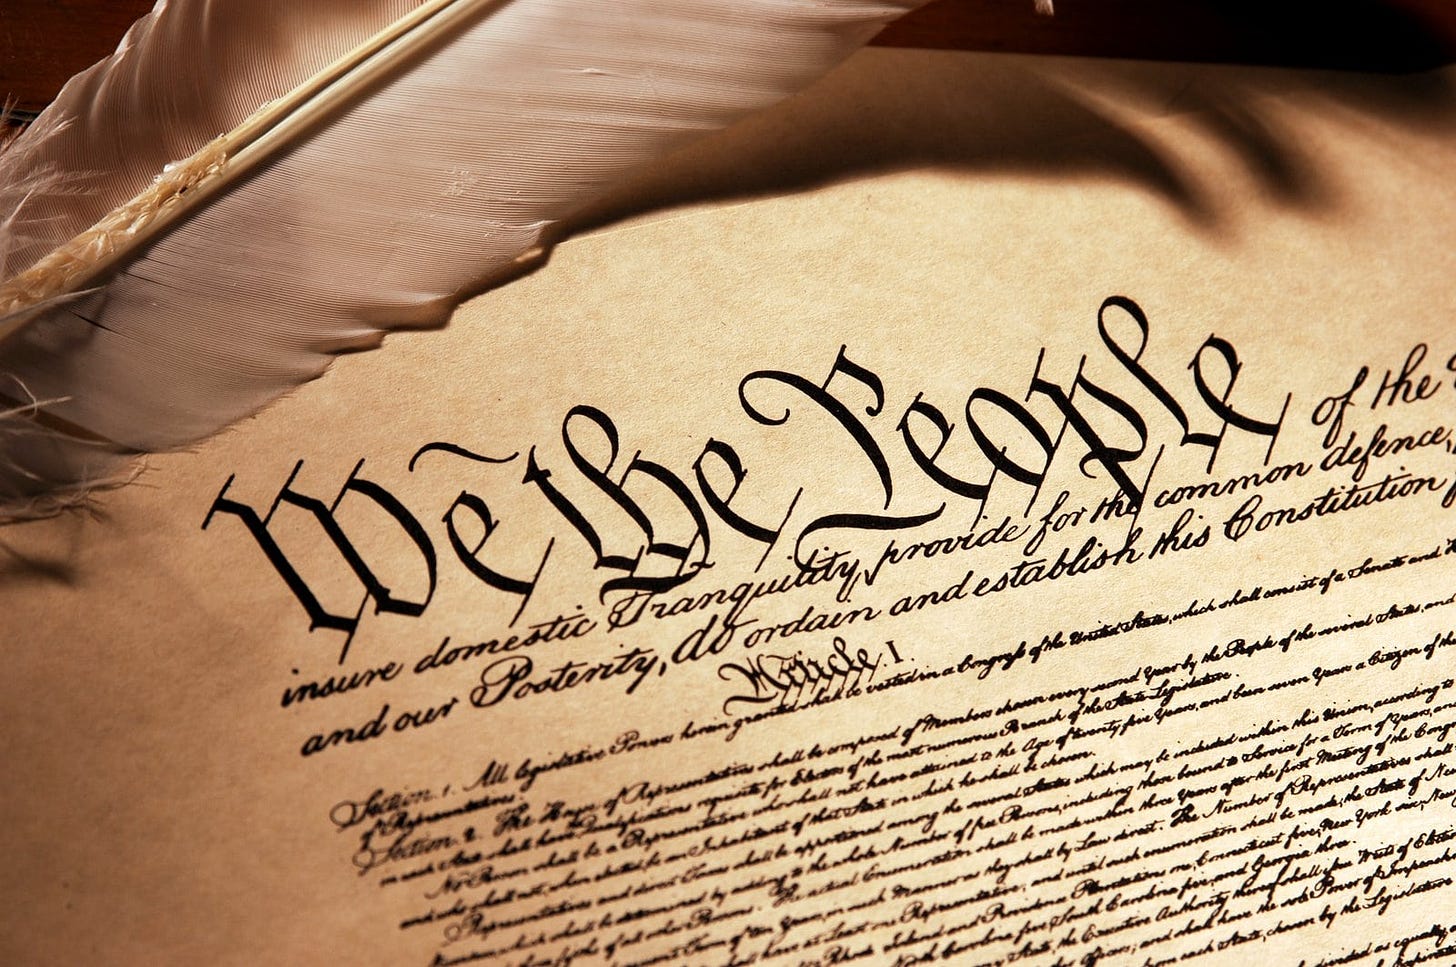 We the People of the
insure domestic Tranquility, provide for the common defence,
and our Posterity, do ordain and establish this Constitution
Article. I.
Section. 1. All legislative Powers herein granted shall be vested in a Congress of the United States, which shall consist of a Senate and
of Representatives.
Section. 2. The House of Representatives shall be composed of Members chosen every second Year by the People of the several States, and
in each State shall have Qualifications requisite for Electors of the most numerous Branch of the State Legislature.
No Person shall be a Representative who shall not have attained to the Age of twenty five Years, and been seven Years a Citizen of the
and who shall not, when elected, be an Inhabitant of that State in which he shall be chosen.
Representatives and direct Taxes shall be apportioned among the several States which may be included within this Union, according to
which shall be determined by adding to the whole Number of free Persons, including those bound to Service for a Term of Years, and
of all other Persons. The actual Enumeration shall be made within three Years after the first Meeting of the
Term of ten Years, in such Manner as they shall by Law direct. The Number of Representatives shall
have at Least one Representative; and until such enumeration shall be made, the State of New
Rhode Island and Providence Plantations one, Connecticut five, New York six, New
North Carolina five, South Carolina five, and Georgia three.
State, the Executive Authority thereof shall issue Writs of
other Officers; and shall have the sole Power of
from each State, chosen by the Legislature
divided as equally